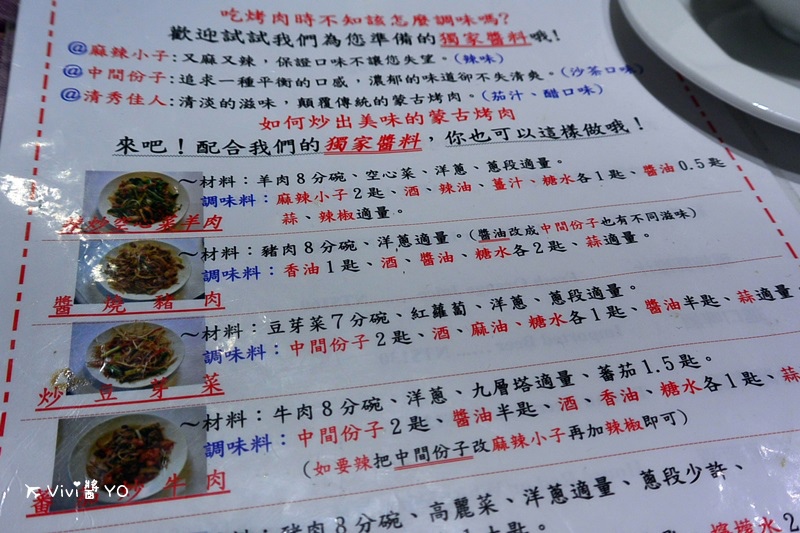 吃烤肉時不知該怎麼調味嗎?
歡迎試試我們為您準備的獨家醬料哦!
@麻辣小子:又麻又辣,保證口味不讓您失望。(辣味)
@中間份子:追求一種平衡的口感,濃郁的味道卻不失清爽。(沙茶口味)
@清秀佳人:清淡的滋味,顛覆傳統的蒙古烤肉。(茄汁、醋口味)
如何炒出美味的蒙古烤肉
來吧!配合我們的獨家醬料,你也可以這樣做哦!
~材料:羊肉8分碗、空心菜、洋蔥、蔥段適量。
調味料:麻辣小子2匙、酒、辣油、薑汁、糖水各1匙、醬油0.5匙
蒜、辣椒適量。
空心菜羊肉
~材料:豬肉8分碗、洋蔥適量。(醬油改成中間份子也有不同滋味)
調味料:香油1匙、酒、醬油、糖水各2匙、蒜適量。
醬燒豬肉
~材料:豆芽菜7分碗、紅蘿蔔、洋蔥、蔥段適量。
調味料:中間份子2匙、酒、麻油、糖水各1匙、醬油半匙、蒜適量
炒豆芽菜
~材料:牛肉8分碗、洋蔥、九層塔適量、蕃茄1.5匙。
調味料:中間份子2匙、醬油半匙、酒、香油、糖水各1匙、蒜
(如要辣把中間份子改麻辣小子再加辣椒即可)
蕃 炒牛肉
豬肉8分碗、高麗菜、洋蔥適量、蔥段少許、
匙。
檸檬水2
Vivi醬 YO